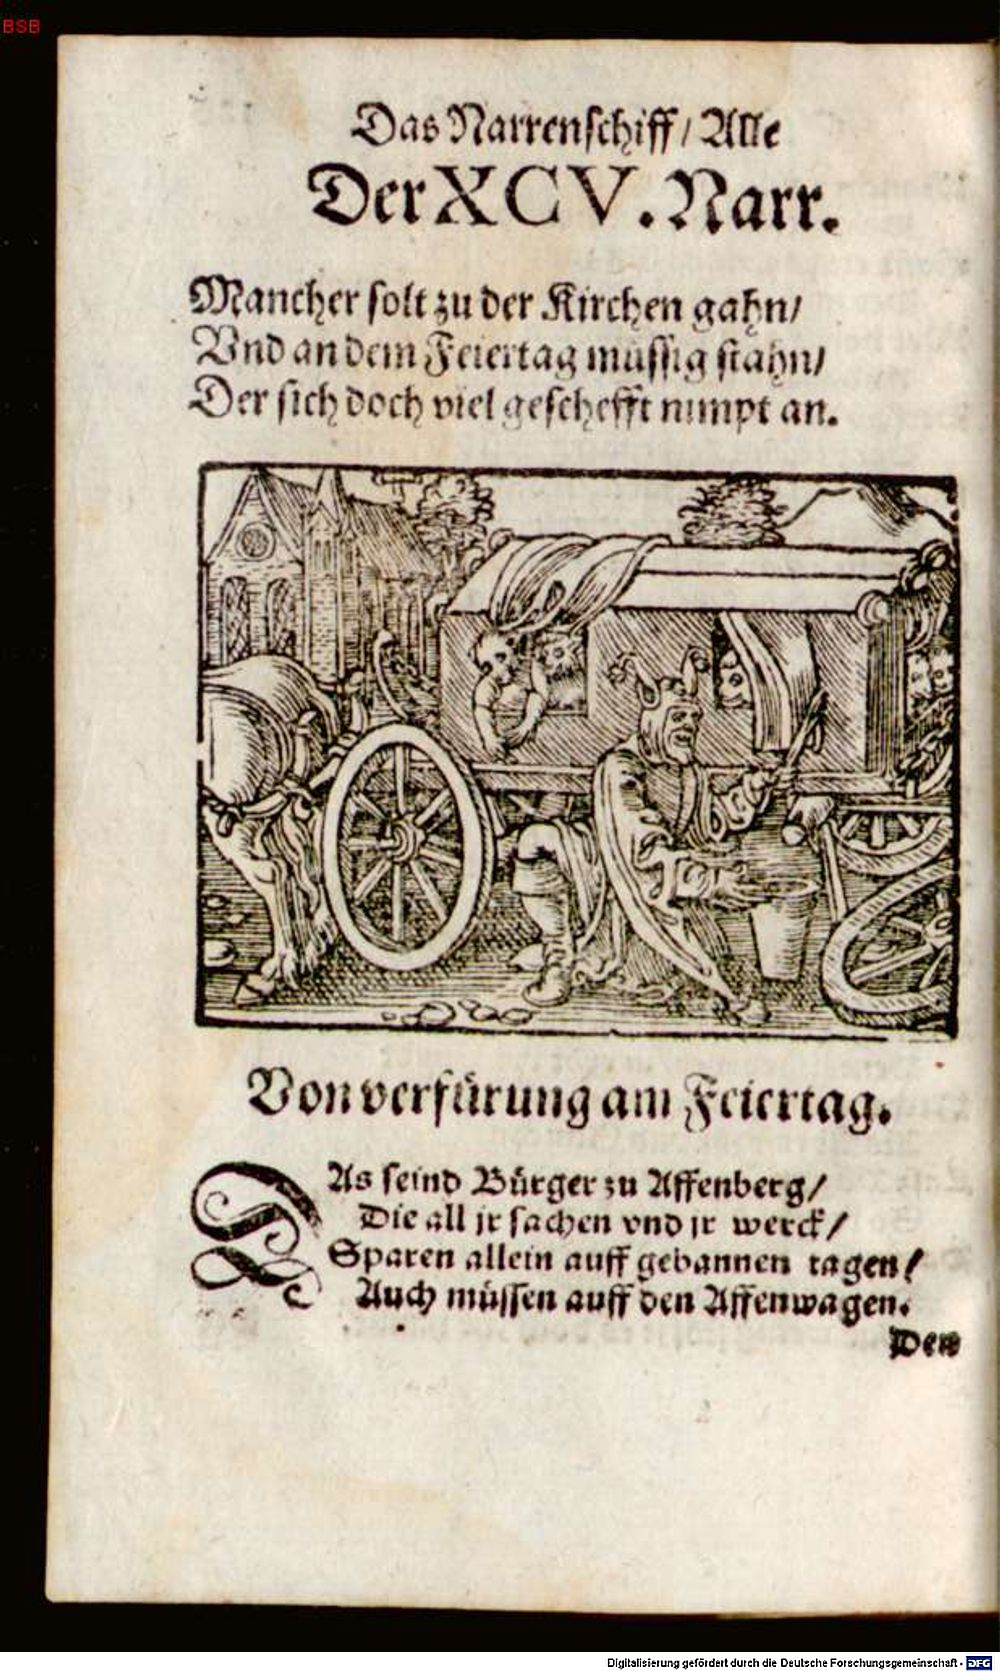 BSB
Das Narrenschiff / Alle
Der XCV. Narr.
Mancher solt zu der Kirchen gahn /
Vnd an dem Feiertag müssig stahn /
Der sich doch viel geschefft nimpt an.
Von verfürung am Feiertag.
DAs seind Bürger zu Affenberg /
Die all jr sachen vnd jr werck /
Sparen allein auff gebannen tagen /
Auch müssen auff den Affenwagen.
Den
Digitalisierung gefördert durch die Deutsche Forschungsgemeinschaft - DFG